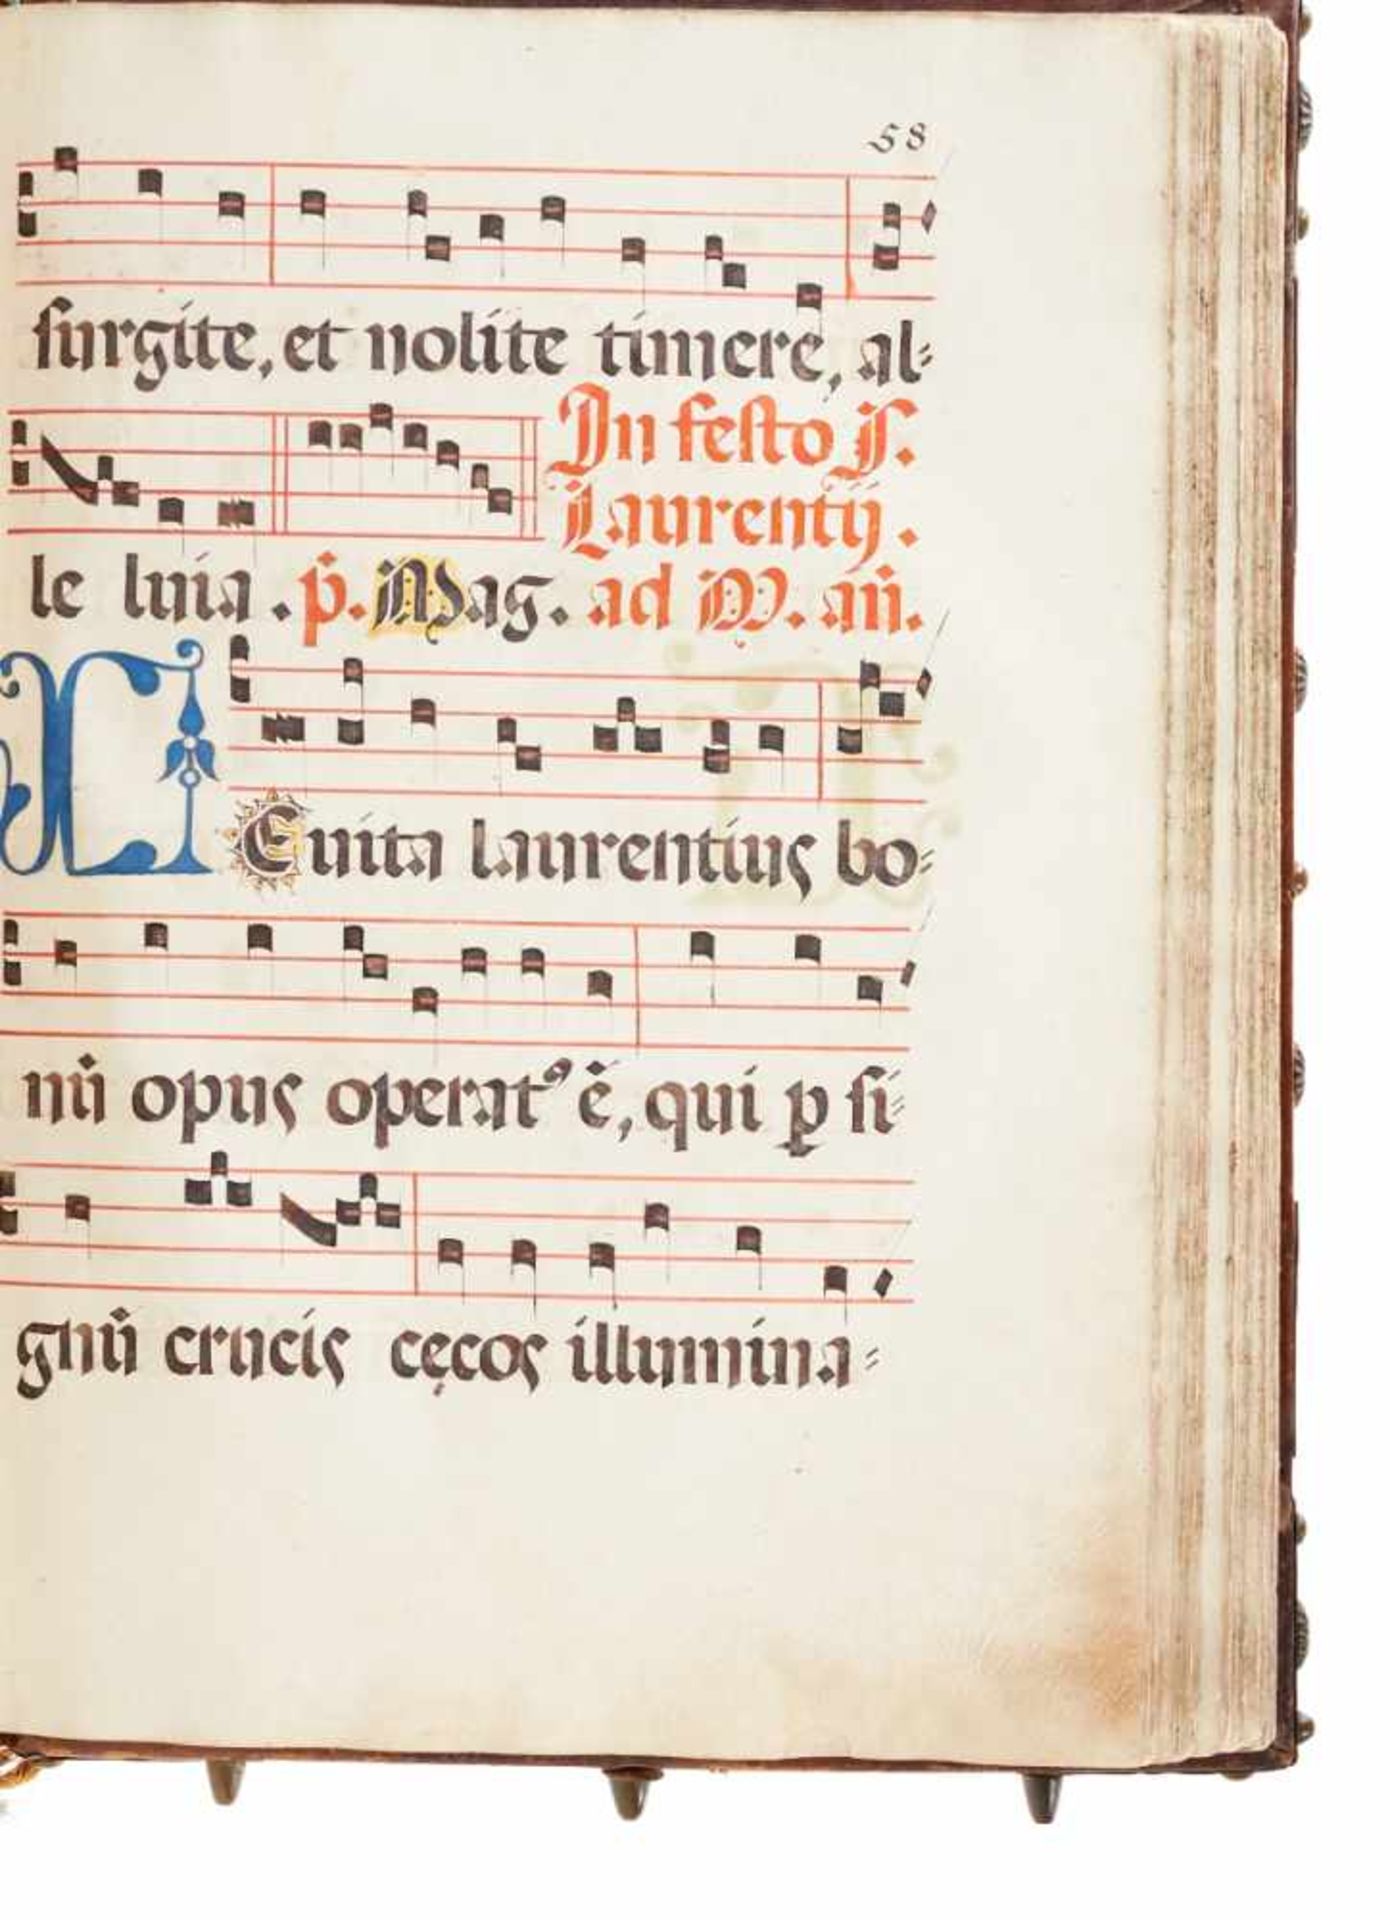 58
surgite, et nolite timere, al=
In festo S.
Laurentij.
le luia. p̃. Mag. ad M. añ.
LEuita laurentius bo=
nũ opus operatꝰ ẽ, qui ꝑ si=
gnũ crucis cęcos illumina=